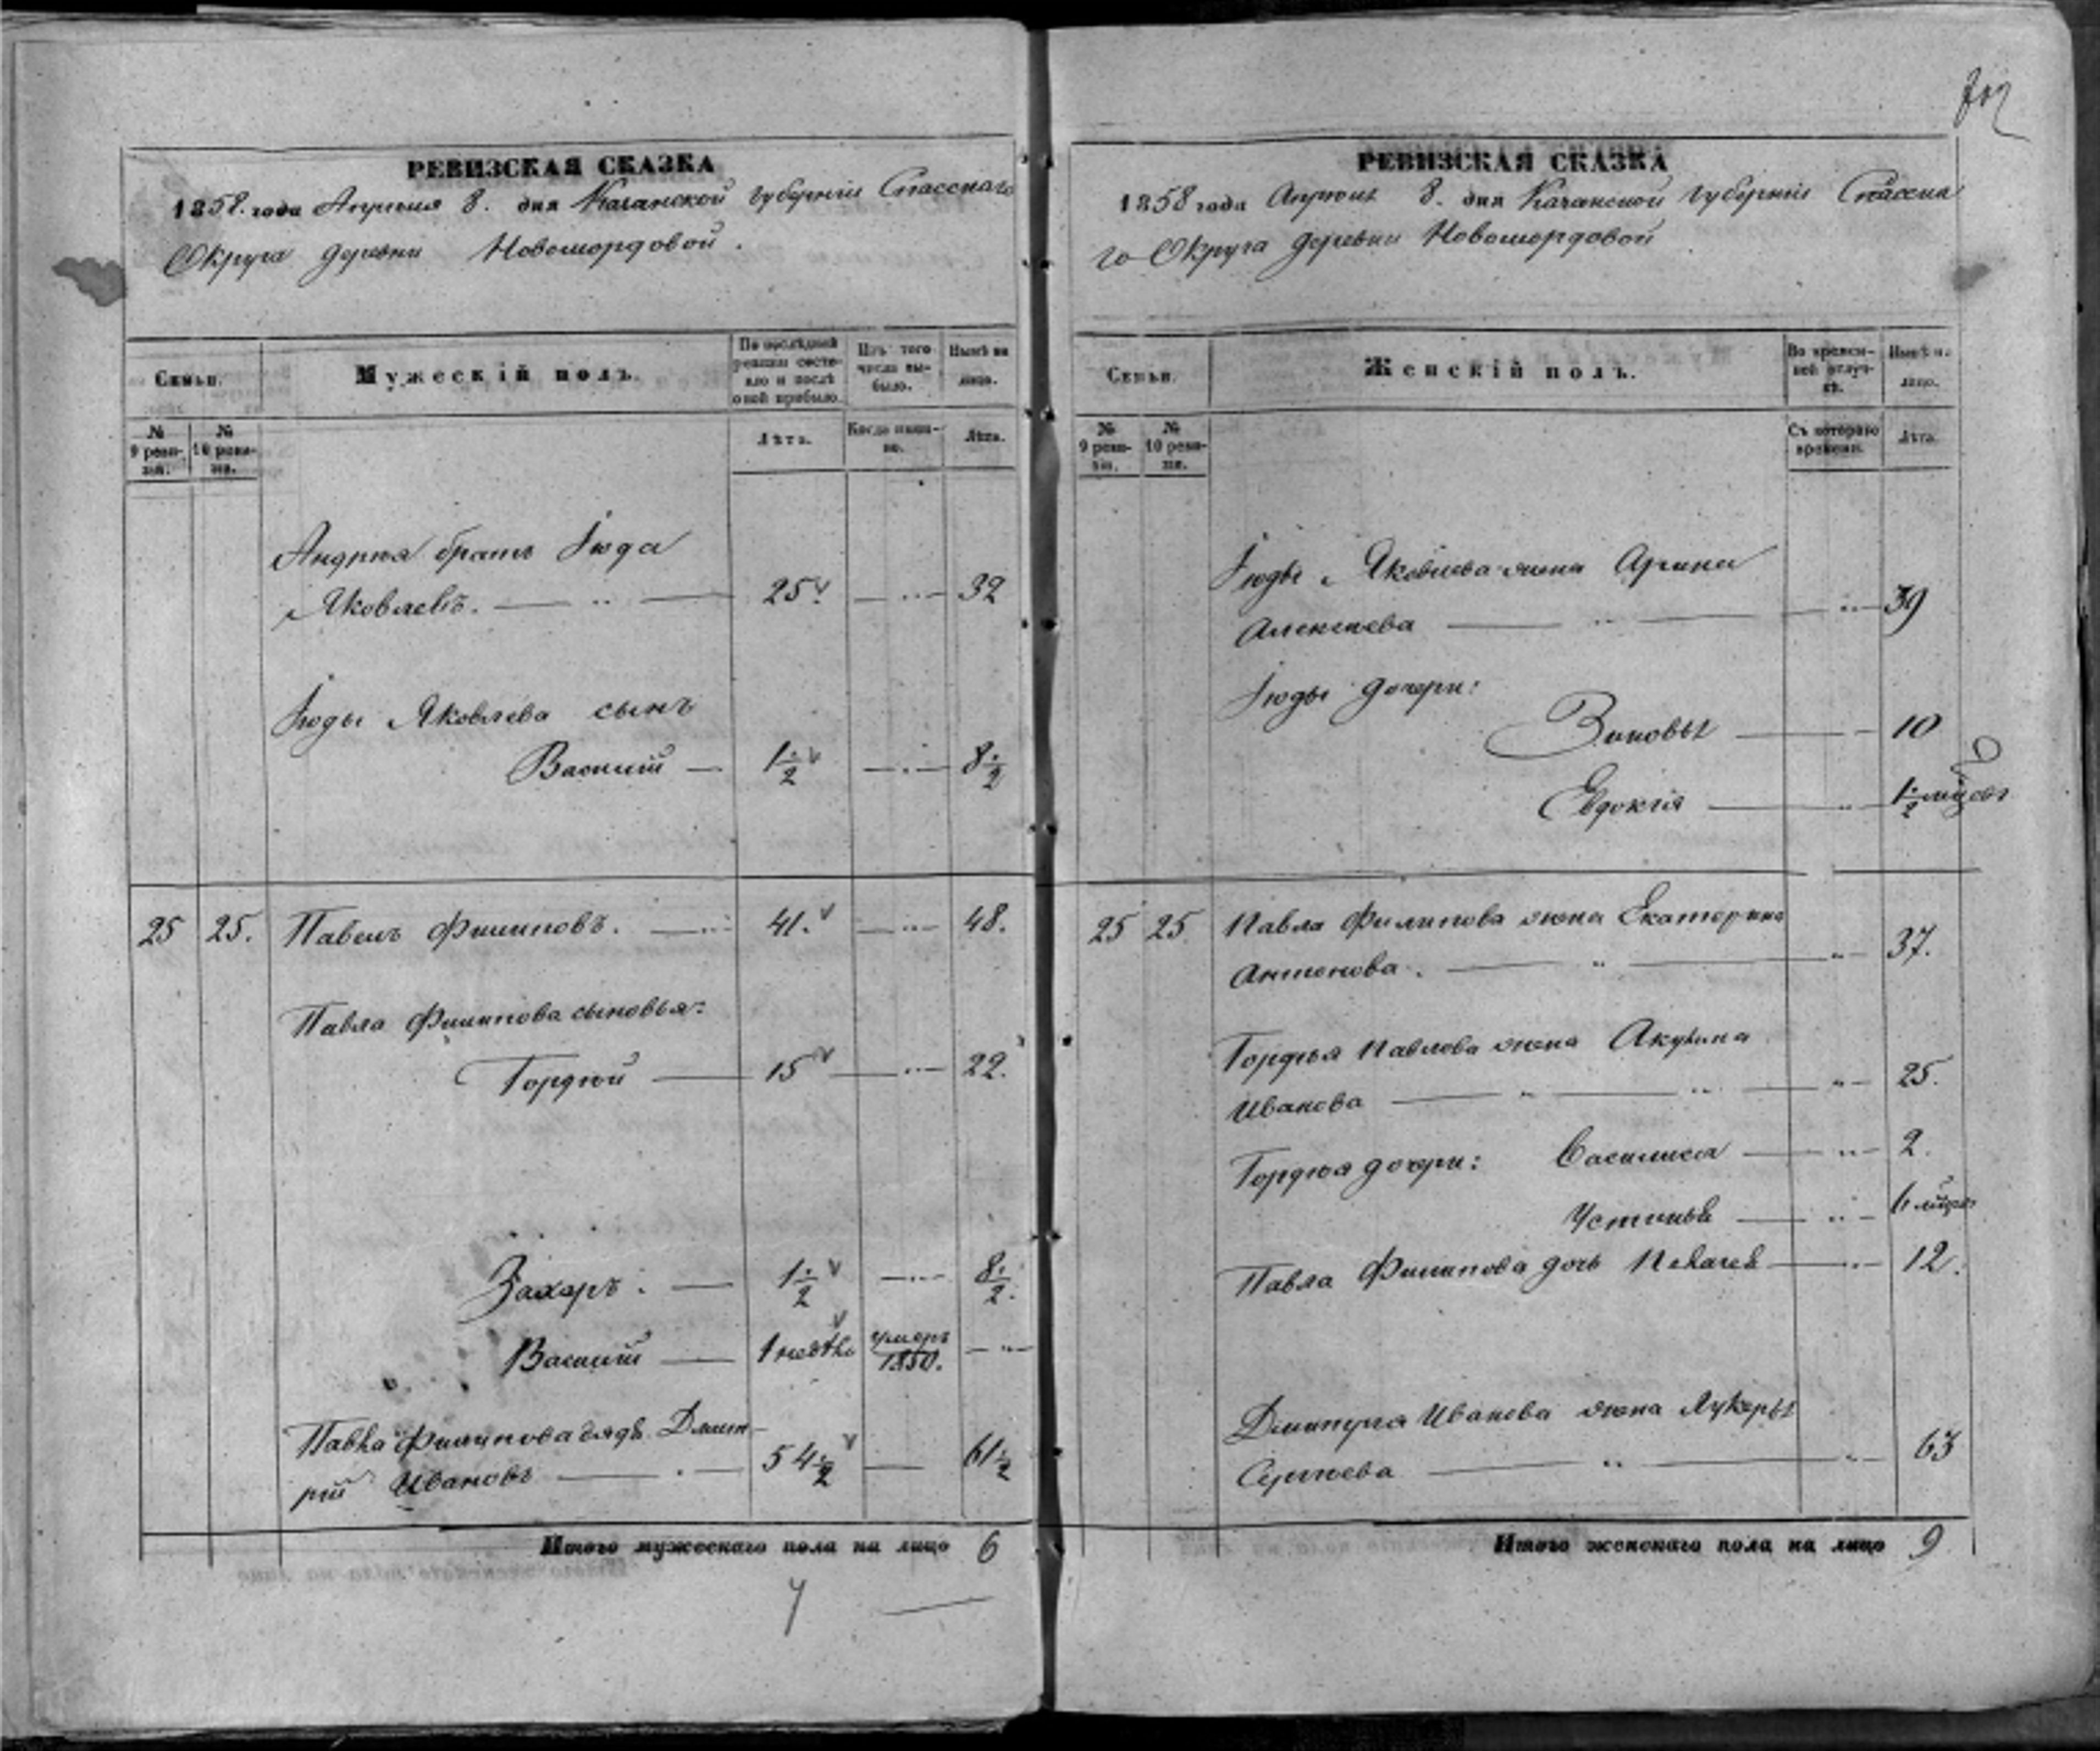 РЕВИЗСКАЯ СКАЗКА
1858. года Апреля 8. дня Казанской губерніи Спасскаго
Округа деревни Новомордовой.
Семьи.
Мужескій полъ.
По послѣдней ревизіи состояло и послѣ оной прибыло.
Изъ того числа выбыло.
Нынѣ на лицо.
№ 9 ревизіи.
№ 10 ревизіи.
Лѣта.
Когда именно.
Лѣта.
Андрея братъ Іюда
Яковлевъ. 25. 32
Іюды Яковлева сынъ
Василій 1 1/2 8 1/2
25 25. Павелъ Филиповъ. 41. 48.
Павла Филипова сыновья:
Гордѣй 15 22.
Захаръ. 1 1/2 8 1/2.
Василій 1 недѣли умеръ 1850.
Павла Филипова дядя Дмит-
рій Ивановъ 54 1/2 61 1/2
Итого мужескаго пола на лицо 6
7
РЕВИЗСКАЯ СКАЗКА
1858 года Апреля 8. дня Казанской губерніи Спасска
го Округа деревни Новомордовой
Семьи.
Женскій полъ.
Во временной отлучкѣ.
Нынѣ на лицо.
№ 9 ревизіи.
№ 10 ревизіи.
Съ котораго времени.
Лѣта.
Іюды Яковлева жена Арина
Алексѣева 39
Іюды дочери:
Зиновья 10
Евдокія 1 1/2
25 25 Павла Филипова жена Екатерина
Антонова. 37.
Гордѣя Павлова жена Акулина
Иванова 25.
Гордѣя дочери: Василиса 2.
Устинья 6
Павла Филипова дочь Пелагея 12.
Дмитрія Иванова жена Лукерья
Сергѣева 63
Итого женскаго пола на лицо 9